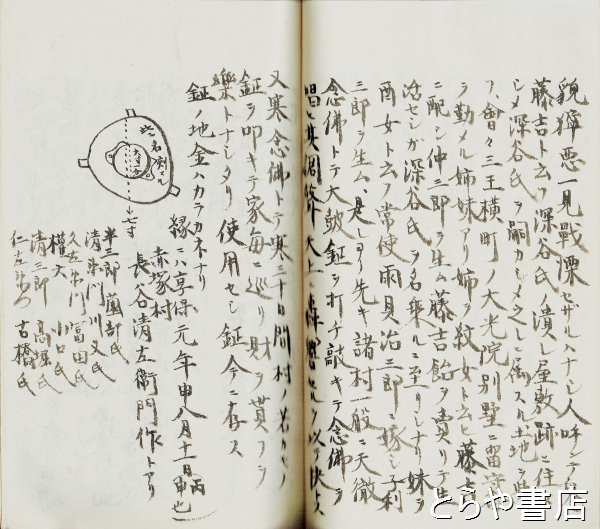 貌獰悪一見戦慄セザルハナシ人呼ンテ
藤吉ト云フ深谷氏ノ潰レ屋敷跡ニ住
シメ深谷氏ヲ嗣カシメ之レニ属スル土地ヲ
フ、會々三王横町ノ大光院別墅ニ留守
ヲ勤メル姉妹アリ姉ヲ紋女ト云ヒ藤吉
ニ配シ仲三郎ヲ生ム藤吉飴ヲ賣リテ生
活セシガ深谷氏ヲ名乗ルニ至リシナリ妹ヲ
酉女ト云フ常使雨貝治三郎ニ嫁シ子利
三郎ヲ生ム、是レヨリ先キ諸村一般ニ天徹
念佛トテ大皷鉦ヲ打チ敲キテ念佛ヲ
唱ヒ其調
又寒念佛トテ寒三十日間村ノ若キモノ
鉦ヲ叩キテ家毎ニ巡リ財ヲ貰フヲ
樂トナシタリ使用セシ鉦今ニ存ス
鉦ノ地金ハカラカネナリ
縁ニハ享保元年申八月十一日丙申也
赤塚村
長谷清左衛門作トアリ
七寸
半三郎 薗部氏
清衛門 川又氏
久左衛門 冨田氏
權六 小口氏
清三郎 高
仁左衛門 古橋氏
とらや書店